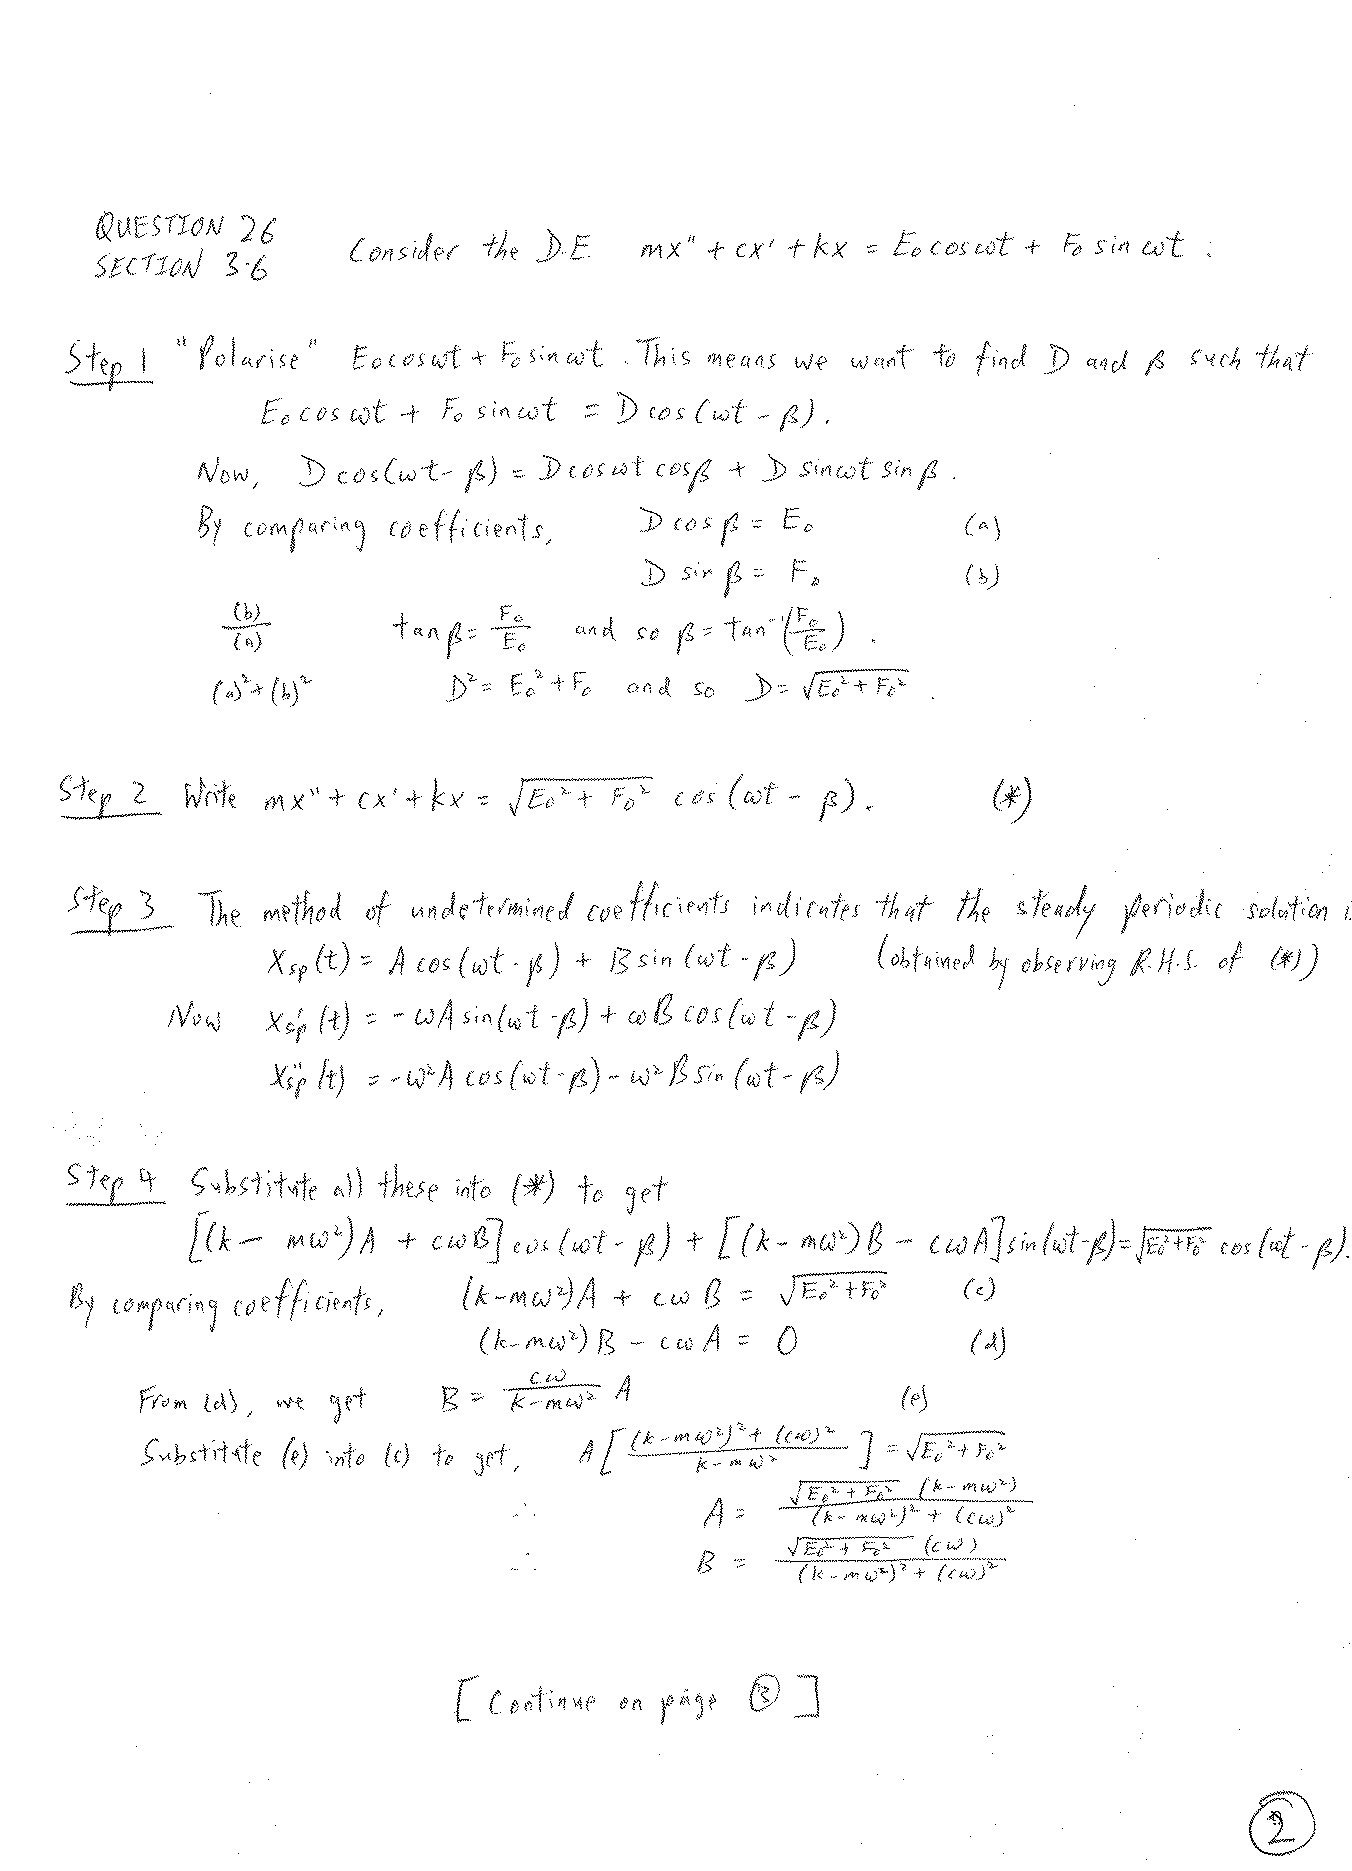 QUESTION 26
SECTION 3.6
Consider the D.E. mx" + cx' + kx = E₀cosωt + F₀ sin ωt .
Step 1 "Polarise" E₀cosωt + F₀sinωt . This means we want to find D and β such that
E₀cosωt + F₀ sinωt = D cos(ωt - β).
Now, D cos(ωt - β) = D cosωt cosβ + D sinωt sin β .
By comparing coefficients, D cos β = E₀ (a)
D sin β = F₀ (b)
(b)/(a) tanβ = F₀/E₀ and so β = tan⁻¹(F₀/E₀) .
(a)² + (b)² D² = E₀² + F₀ and so D = √(E₀² + F₀²) .
Step 2 Write mx" + cx' + kx = √(E₀² + F₀²) cos (ωt - β). (*)
Step 3 The method of undetermined coefficients indicates that the steady periodic solution i
Xsp(t) = A cos(ωt - β) + B sin (ωt - β) (obtained by observing R.H.S. of (*))
Now Xsp'(t) = - ωA sin(ωt - β) + ωB cos(ωt - β)
Xsp"(t) = -ω²A cos(ωt - β) - ω²B sin (ωt - β)
Step 4 Substitute all these into (*) to get
[(k - mω²)A + cωB] cos (ωt - β) + [(k - mω²)B - cωA] sin(ωt - β) = √(E₀² + F₀²) cos (ωt - β).
By comparing coefficients, (k - mω²)A + cωB = √(E₀² + F₀²) (c)
(k - mω²)B - cωA = 0 (d)
From (d), we get B = cω/(k - mω²) A (e)
Substitute (e) into (c) to get, A[((k - mω²)² + (cω)²)/(k - mω²)] = √(E₀² + F₀²)
∴ A = √(E₀² + F₀²) (k - mω²)/((k - mω²)² + (cω)²)
∴ B = √(E₀² + F₀²) (cω)/((k - mω²)² + (cω)²)
[Continue on page ③]
②